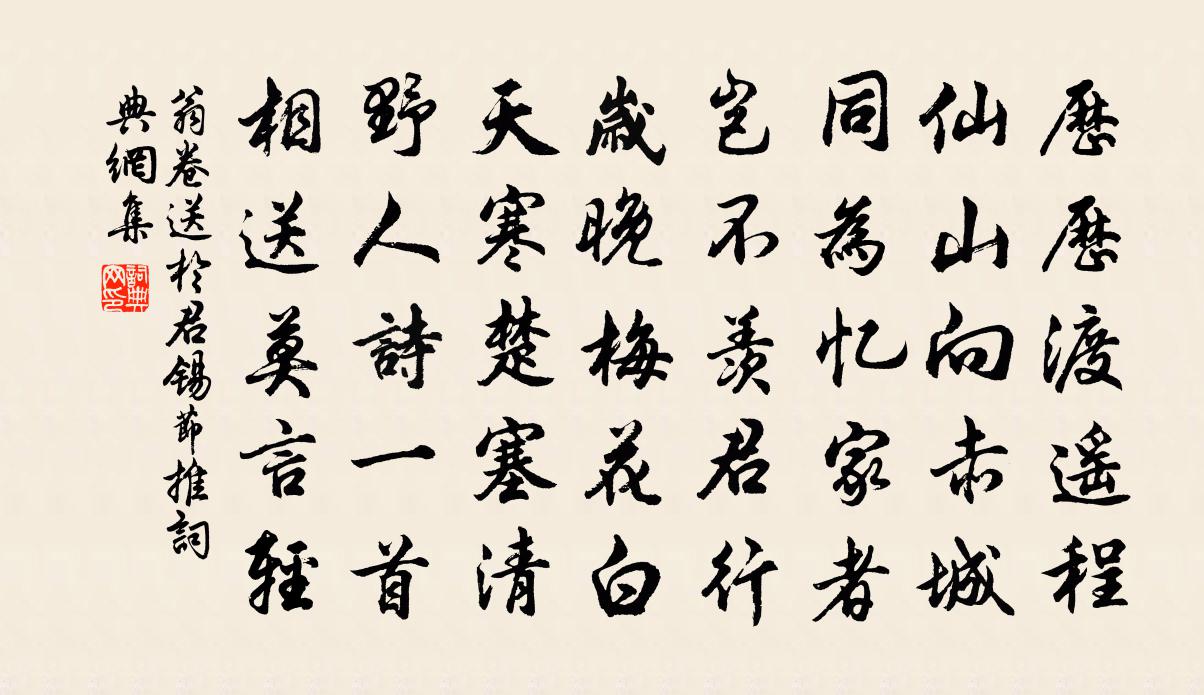 歷歷渡遙程
仙山向赤城
同為忆家者
豈不羨君行
歲晚梅花白
天寒楚塞清
野人詩一首
相送莫言輕
翁卷送於君錫節推詞
典網集
詞典
网印